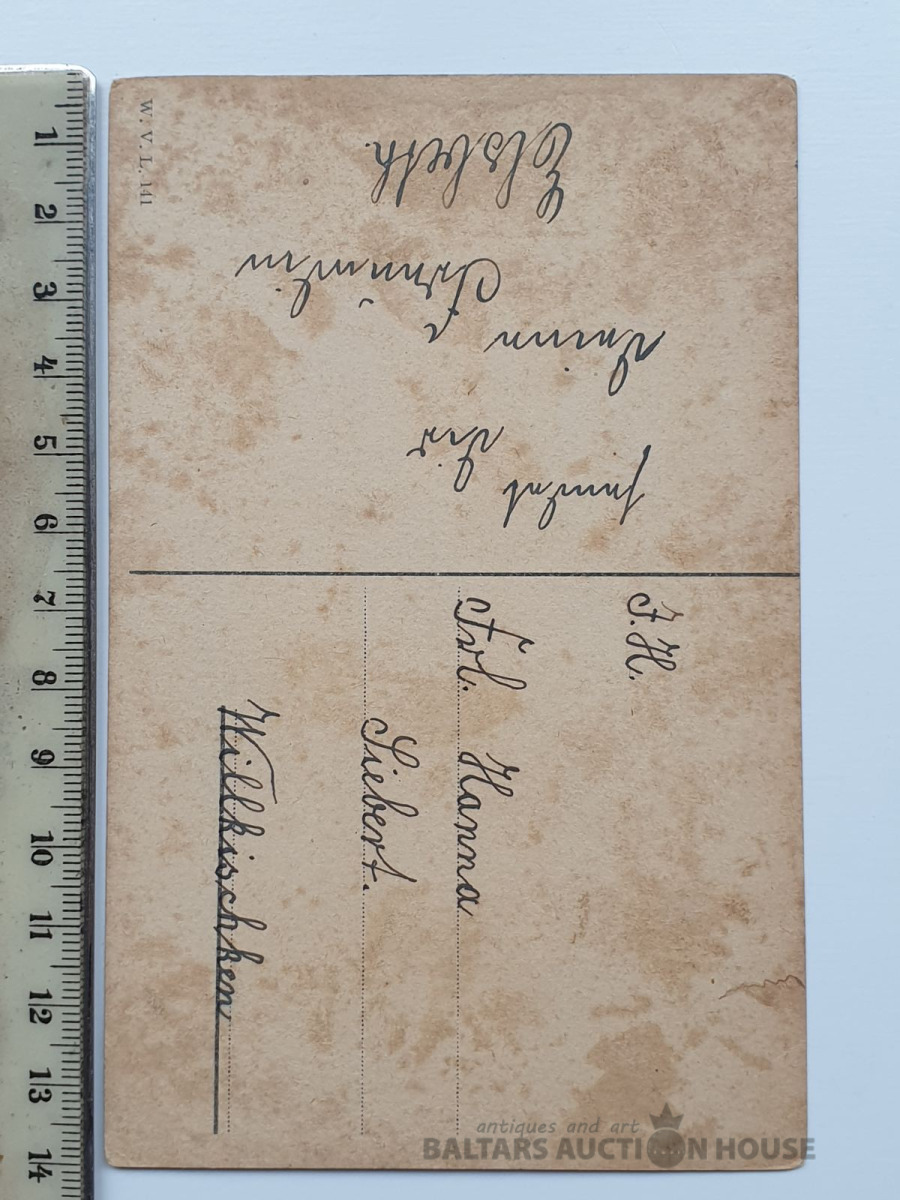 W. V. L. 141
sendet Dir
Deine
Freundin
Elsbeth.
J. H.
Frl. Hanna
Siebert.
Willkischken
1
2
3
4
5
6
7
8
9
10
11
12
13
14
antiques and art
BALTARS AUCTION HOUSE